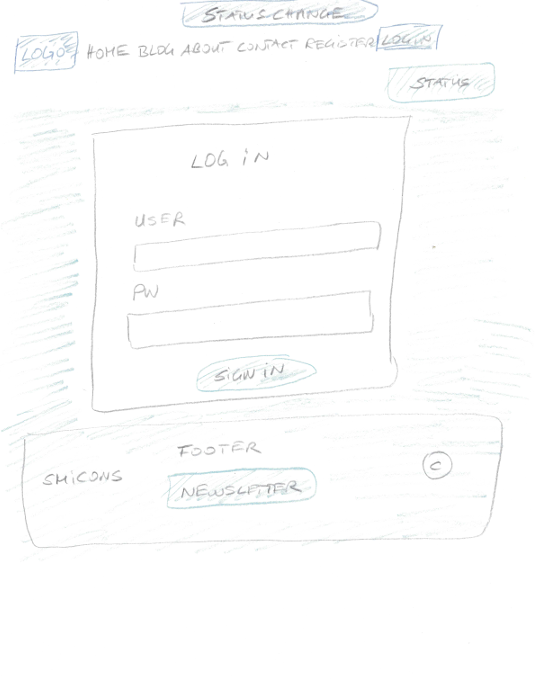 STATUS CHANGE
LOGO HOME BLOG ABOUT CONTACT REGISTER LOGIN
STATUS
LOG iN
USER
PW
SiGN iN
FOOTER
SMiCONS
NEWSLETTER
C